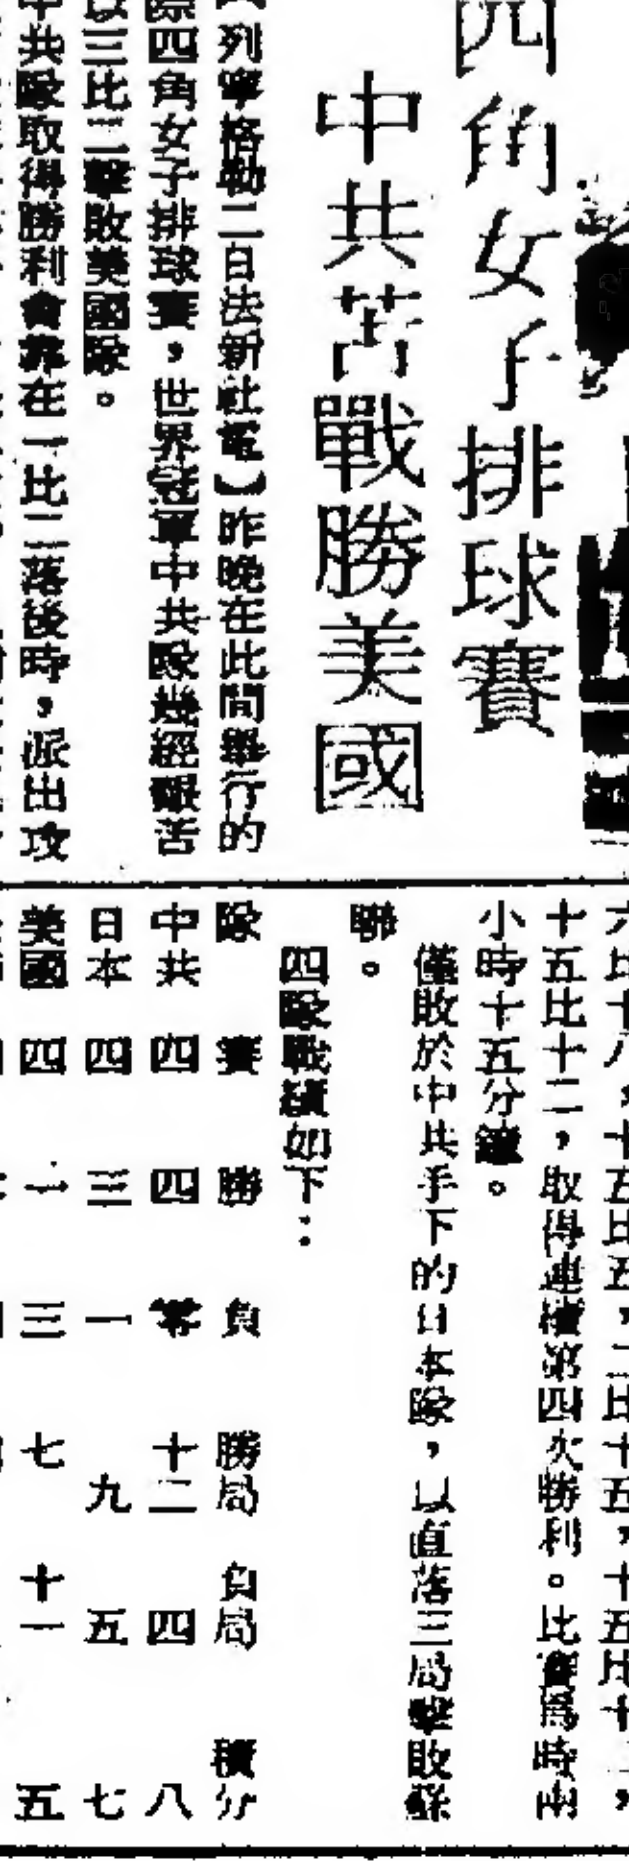 四角女子排球賽
中共苦戰勝美國
列寧格勒二日法新社電】昨晚在此間舉行的
際四角女子排球賽,世界冠軍中共隊幾經艱苦
以三比二擊敗美國隊。
中共隊取得勝利會靠在一比二落後時,派出攻
六比十八,十五比五,二比十五,十五比十二,
十五比十二,取得連續第四次勝利。比賽爲時兩
小時十五分鐘。
僅敗於中共手下的日本隊,以直落三局擊敗蘇
聯。
四隊戰績如下:
隊 賽 勝 負 勝局 負局 積分
中共 四 四 零 十二 四 八
日本 四 三 一 九 五 七
美國 四 一 三 七 十一 五